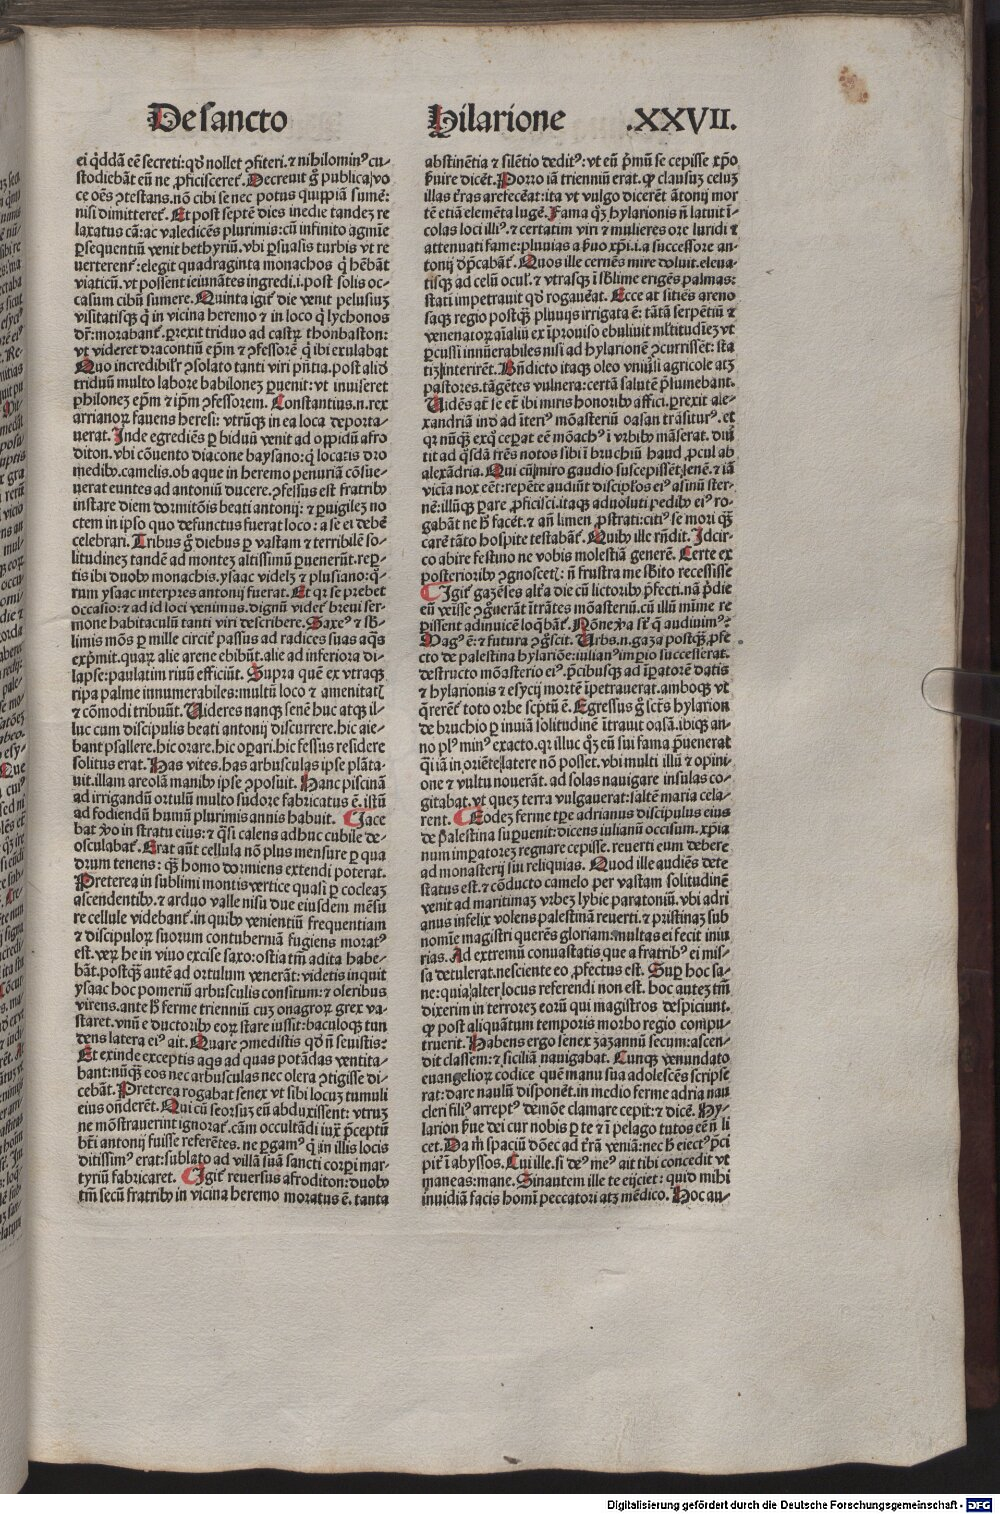 De sancto
Hilarione .XXVII.
ei q̇ddā eē secreti: qđ nollet ꝯfiteri. ⁊ nihilominꝰ cu-
stodiebāt eū ne ꝓficisceret᷑. Decreuit g̊ publica vo
ce oēs ꝯtestans. nō cibi se nec potus quippiā sumē:
nisi dimitteret᷑. Et post septē dies inedie tandeꝫ re
laxatus cā: ac valedicēs plurimis: cū infinito agmīe
ꝑsequentiū venit bethyriū. vbi ꝑsuasis turbis vt re
uerterent᷑: elegit quadraginta monachos q̇ hēbāt
viaticū. vt possent ieiunātes ingredi .i. post solis oc-
casum cibū sumere. Quinta igit᷑ die venit pelusiuꝫ
visitatisqꝫ q̇ in vicina heremo ⁊ in loco q̇ lychonos
dr̄: morabant᷑. ꝑrexit triduo ad castꝝ thonbaston:
vt videret dracontiū ep̄m ⁊ ꝯfessorē q̇ ibi exulabat
Quo incredibilr̄ ꝯsolato tanti viri pn̄tia. post aliđ
triduū multo labore babiloneꝫ ꝑuenit: vt inuiseret
philoneꝫ ep̄m ⁊ ip̄m ꝯfessorem. Constantius .n. rex
arrianoꝝ fauens heresi: vtrūqꝫ in ea loca deporta-
uerat. Inde egrediēs ꝑ biduū venit ad oppidū afro
diton. vbi cōuento diacone baysano: q̇ locatis dro
medibꝫ. camelis. ob aque in heremo penuriā cōsue-
uerat euntes ad antoniū ducere. ꝯfessus est fratribꝫ
instare diem dormitōis beati antonij: ⁊ ꝑuigileꝫ no
ctem in ipso quo defunctus fuerat loco: a se ei debē
celebrari. Tribus g̊ diebus ꝑ vastam ⁊ terribilē so-
litudineꝫ tandē ad monteꝫ altissimū ꝑuenerūt. reꝑ-
tis ibi duobꝫ monachis. ysaac videlꝫ ⁊ plusiano: q̇-
rum ysaac interpres antonij fuerat. Et qꝛ se prebet
occasio: ⁊ ad id loci venimus. dignū videt᷑ breui ser-
mone habitaculū tanti viri describere. Saxeꝰ ⁊ sb-
limis mōs ꝑ mille circit᷑ passus ad radices suas aq̄s
exp̄mit. quaꝝ alie arene ebibūt. alie ad inferiora di-
lapse: paulatim riuū efficiūt. Supra quē ex vtraqꝫ
ripa palme innumerabiles: multū loco ⁊ amenitatꝭ
⁊ cōmodi tribuūt. Uideres nanqꝫ senē huc atqꝫ il-
luc cum discipulis beati antonij discurrere. hic aie-
bant psallere. hic orare. hic oꝑari. hic fessus residere
solitus erat. Has vites. has arbusculas ipse plāta-
uit. illam areolā manibꝫ ipse ꝯposuit. Hanc piscinā
ad irrigandū ortulū multo sudore fabricatus ē. istū
ad fodiendū humū plurimis annis habuit. Jace
bat ꝟo in stratu eius: ⁊ q̄si calens adhuc cubile de-
osculabat᷑. Erat aūt cellula nō plus mensure ꝑ qua
drum tenens: q̄ꝫ homo dormiens extendi poterat.
Preterea in sublimi montis vertice quasi ꝑ cocleaꝫ
ascendentibꝫ. ⁊ arduo valle nisu due eiusdem mēsu
re cellule videbant᷑. in quibꝫ venientiū frequentiam
⁊ discipuloꝝ suorum contuberniā fugiens moratꝰ
est. veꝝ he in viuo excise saxo: ostia tm̄ adita habe-
bāt. postqꝫ̄ autē ad ortulum venerāt: videtis inquit
ysaac hoc pomeriū arbusculis consitum: ⁊ oleribus
virens. ante h̄ ferme trienniū cuꝫ onagroꝝ grex va-
staret. vnū e ductoribꝫ eoꝝ stare iussit: baculoqꝫ tun
dens latera eiꝰ ait. Quare ꝯmedistis qđ n̄ seuistis:
Et exinde exceptis aq̄s ad quas potādas ventita-
bant: nūq̄ꝫ eos nec arbusculas nec olera ꝯtigisse di-
cebāt. Preterea rogabat senex vt sibi locuꝫ tumuli
eius on̄derēt. Qui cū seorsuꝫ eū abduxissent: vtruꝫ
ne mōstrauerint ignorat᷑. cām occultādi iuxᷓ p̄ceptū
bt̄i antonij fuisse referētes. ne ꝑgamꝰ q̇ in illis locis
ditissimꝰ erat: sublato ad villā suā sancti corꝑi mar-
tyriū fabricaret. Igit᷑ reuersus afroditon: duobꝫ
tm̄ secū fratribꝫ in vicina heremo moratus ē. tanta
abstinētia ⁊ silētio deditꝰ: vt eū p̄mū se cepisse xp̄o
ẜuire dicēt. Porro iā trienniū erat. qꝙ clausuꝫ celuꝫ
illas t̄ras arefecēat: ita vt vulgo dicerēt ātonij mor
tē etiā elemēta lugē. Fama qꝫ hylarionis n̄ latuit ī-
colas loci illiꝰ. ⁊ certatim viri ⁊ mulieres ore luridi ⁊
attenuati fame: pluuias a ẜuo xp̄i .i. a successore an-
tonij dep̄cabāt᷑. Quos ille cernēs mire doluit. eleua-
tisqꝫ ad celū ocul̓. ⁊ vtrasqꝫ ī sb̄lime erigēs palmas:
statī impetrauit qđ rogauēat. Ecce at sitiēs areno
saqꝫ regio postq̄ꝫ pluuijs irrigata ē: tātā serpētiū ⁊
venenatoꝝ aīaliū ex īprouiso ebuliuit ml̓titudīeꝫ vt
ꝑcussi innūerabiles nisi ad hylarionē ꝯcurrissēt: sta
tiꝫ interirēt. Bn̄dicto itaqꝫ oleo vniūsi agricole atqꝫ
pastores. tāgētes vulnera: certā salutē p̄sumebant.
Uidēs at̄ se et̄ ibi miris honoribꝫ affici. ꝑrexit ale-
xandriā ind̓ ad īteriꝰ mōasteriū oasan trāsiturꝰ. et
qꝛ nūq̄ꝫ exq̊ ceperat eē mōachꝰ ī vrbibꝫ māserat. diū
tit ad q̄sdā fr̄es notos sibi ī bruchiū haud ꝓcul ab
alexādria. Qui cū miro gaudio suscepissēt senē. ⁊ iā
vicīa nox eēt: repēte audiūt disciplos eiꝰ asinū ster-
nē: illūqꝫ ꝑare ꝓficisci. itaqꝫ aduoluti pedibꝫ eiꝰ ro-
gabāt ne h̄ facēt. ⁊ an̄ limen ꝓstrati: citiꝰ se mori q̄ꝫ
carē tāto hospite testabāt᷑. Quibꝫ ille rn̄dit. Idcir-
co abire festino ne vobis molestiā generē. Certe ex
posterioribꝫ ꝯgnoscetꝭ: n̄ frustra me sb̄ito recessisse
Igit᷑ gazēses alt̄a die cū lictoribꝫ p̄fecti. nā p̄die
eū veīsse ꝯgūerāt ītrātes mōasteriū. cū illū mīme re
ꝑissent adinuicē loq̄bāt᷑. Nōne ꝟa st̄ q̄ audiuimꝰ:
Magꝰ ē: ⁊ futura ꝯgscit. Urbs .n. gaza postq̄ꝫ ꝓfe
cto de palestina hylariōe: iulianꝰ imꝑio successerat.
destructo mōasterio eiꝰ. p̄cibusqꝫ ad īꝑatorē datis
⁊ hylarionis ⁊ esycij mortē īpetrauerat. amboqꝫ vt
q̄rerēt᷑ toto orbe sc̄ptū ē. Egressus g̊ sct̄s hylarion
de bruchio ꝑ inuiā solitudinē ītrauit oasā. ibiqꝫ an-
no plꝰ minꝰ exacto. qꝛ illuc qꝫ eū sui fama p̄uenerat
q̄i iā in oriēte latere nō posset. vbi multi illū ⁊ opini-
one ⁊ vultu nouerāt. ad solas nauigare insulas co-
gitabat. vt queꝫ terra vulgauerat: saltē maria cela-
rent. Eodeꝫ ferme tp̄e adrianus discipulus eius
de palestina suꝑuenit: dicens iulianū occisum. xp̄ia
num imꝑatoreꝫ regnare cepisse. reuerti eum debere
ad monasterij sui reliquias. Quod ille audiēs dete
status est. ⁊ cōducto camelo per vastam solitudinē
venit ad maritimaꝫ vrbeꝫ lybie paratoniū. vbi adri
anus infelix volens palestinā reuerti. ⁊ pristinaꝫ sub
nomīe magistri querēs gloriam. multas ei fecit iniu
rias. Ad extremū conuastatis que a fratribꝰ ei mis-
sa detulerat. nesciente eo ꝓfectus est. Suꝑ hoc sa-
ne: quia alter locus referendi non est. hoc auteꝫ tm̄
dixerim in terroreꝫ eorū qui magistros despiciunt.
qꝙ post aliquātum temporis morbo regio compu-
truerit. Habens ergo senex zazannū secum: ascen-
dit classem: ⁊ siciliā nauigabat. Cunqꝫ venundato
euangelioꝝ codice quē manu sua adolescēs scripse
rat: dare naulū disponēt. in medio ferme adria nau
cleri filiꝰ arreptꝰ demōe clamare cepit: ⁊ dicē. Hy-
larion ẜue dei cur nobis ꝑ te ⁊ ī pelago tutos eē n̄ li
cet. Da m̄ spaciū dōec ad t̄rā veniā: nec h̄ eiectꝰ p̄ci
pit᷑ ī abyssos. Cui ille. si deꝰ meꝰ ait tibi concedit vt
maneas: mane. Sinautem ille te eijciet: quid mihi
inuidiā facis homī peccatori atqꝫ mēdico. Hoc au-
Digitalisierung gefördert durch die Deutsche Forschungsgemeinschaft - DFG